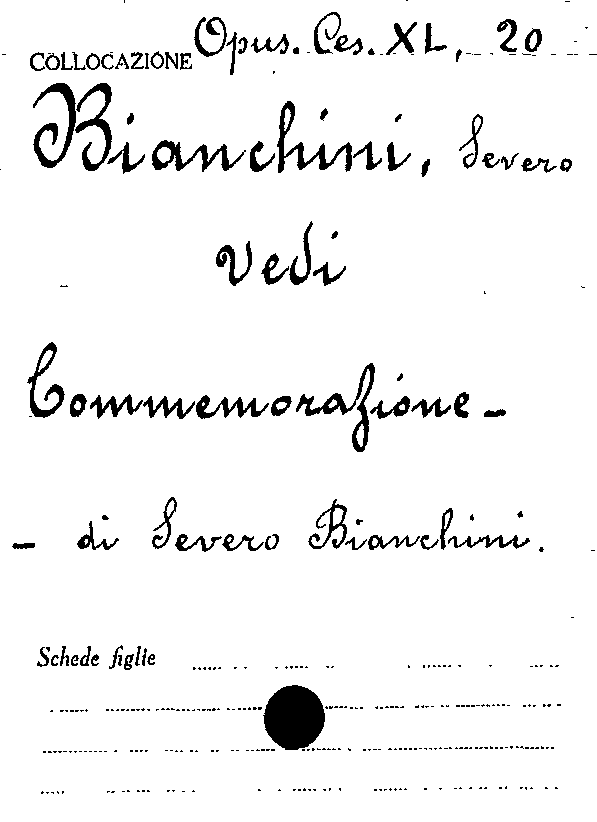 COLLOCAZIONE Opus. Ces. XL, 20
Bianchini, Severo
Vedi
Commemorazione -
- di Severo Bianchini.
Schede figlie